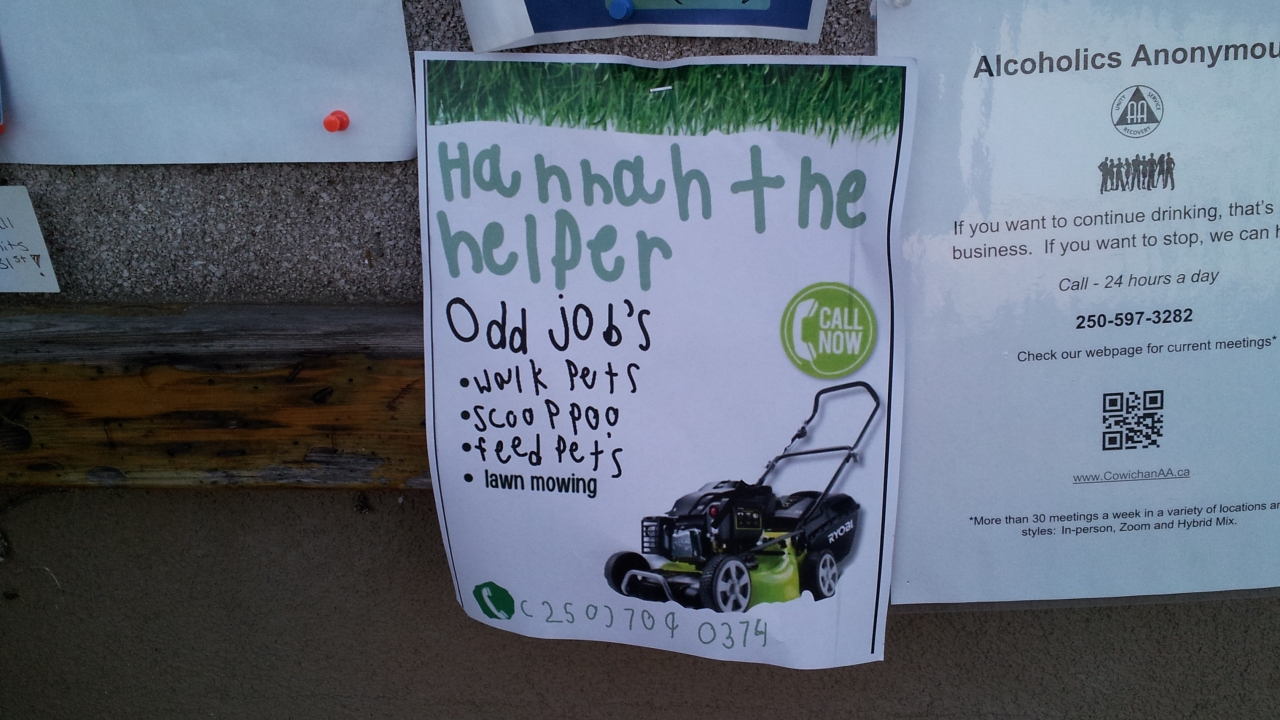 Hannah the
helper
Odd job's
• walk pets
• scoop poo
• feed pet's
• lawn mowing
CALL
NOW
RYOBI
(250) 709 0374
Alcoholics Anonymou
UNITY SERVICE
AA
RECOVERY
If you want to continue drinking, that's
business. If you want to stop, we can h
Call - 24 hours a day
250-597-3282
Check our webpage for current meetings*
www.CowichanAA.ca
*More than 30 meetings a week in a variety of locations an
styles: In-person, Zoom and Hybrid Mix.